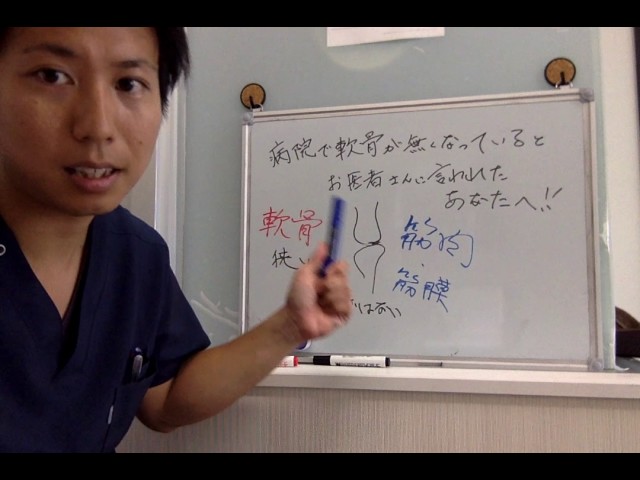 病院で軟骨が無くなっていると
お医者さんに言われた
あなたへ!!
軟骨
狭い
筋肉
筋膜
はない